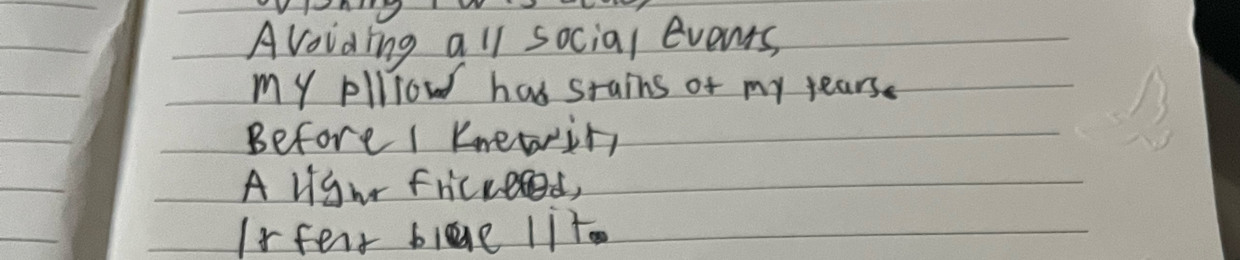 Avoiding all social events,
My pillow has stains of my tears.
Before I knew it,
A light flickered,
It felt blue lit.